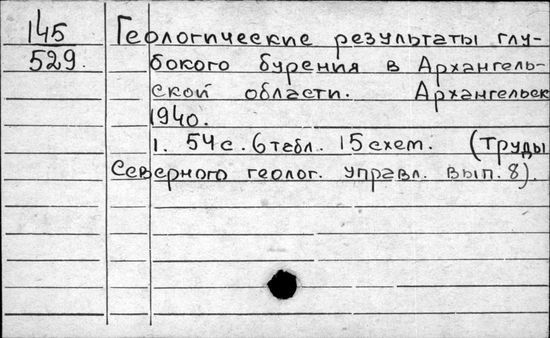 145
529.
Геологические результаты глу-
бокого бурения в Архангель-
ской области. Архангельск
1940.
1. 54 с. 6 табл. 15 схем. (Труды
Северного геолог. управл. вып. 8).